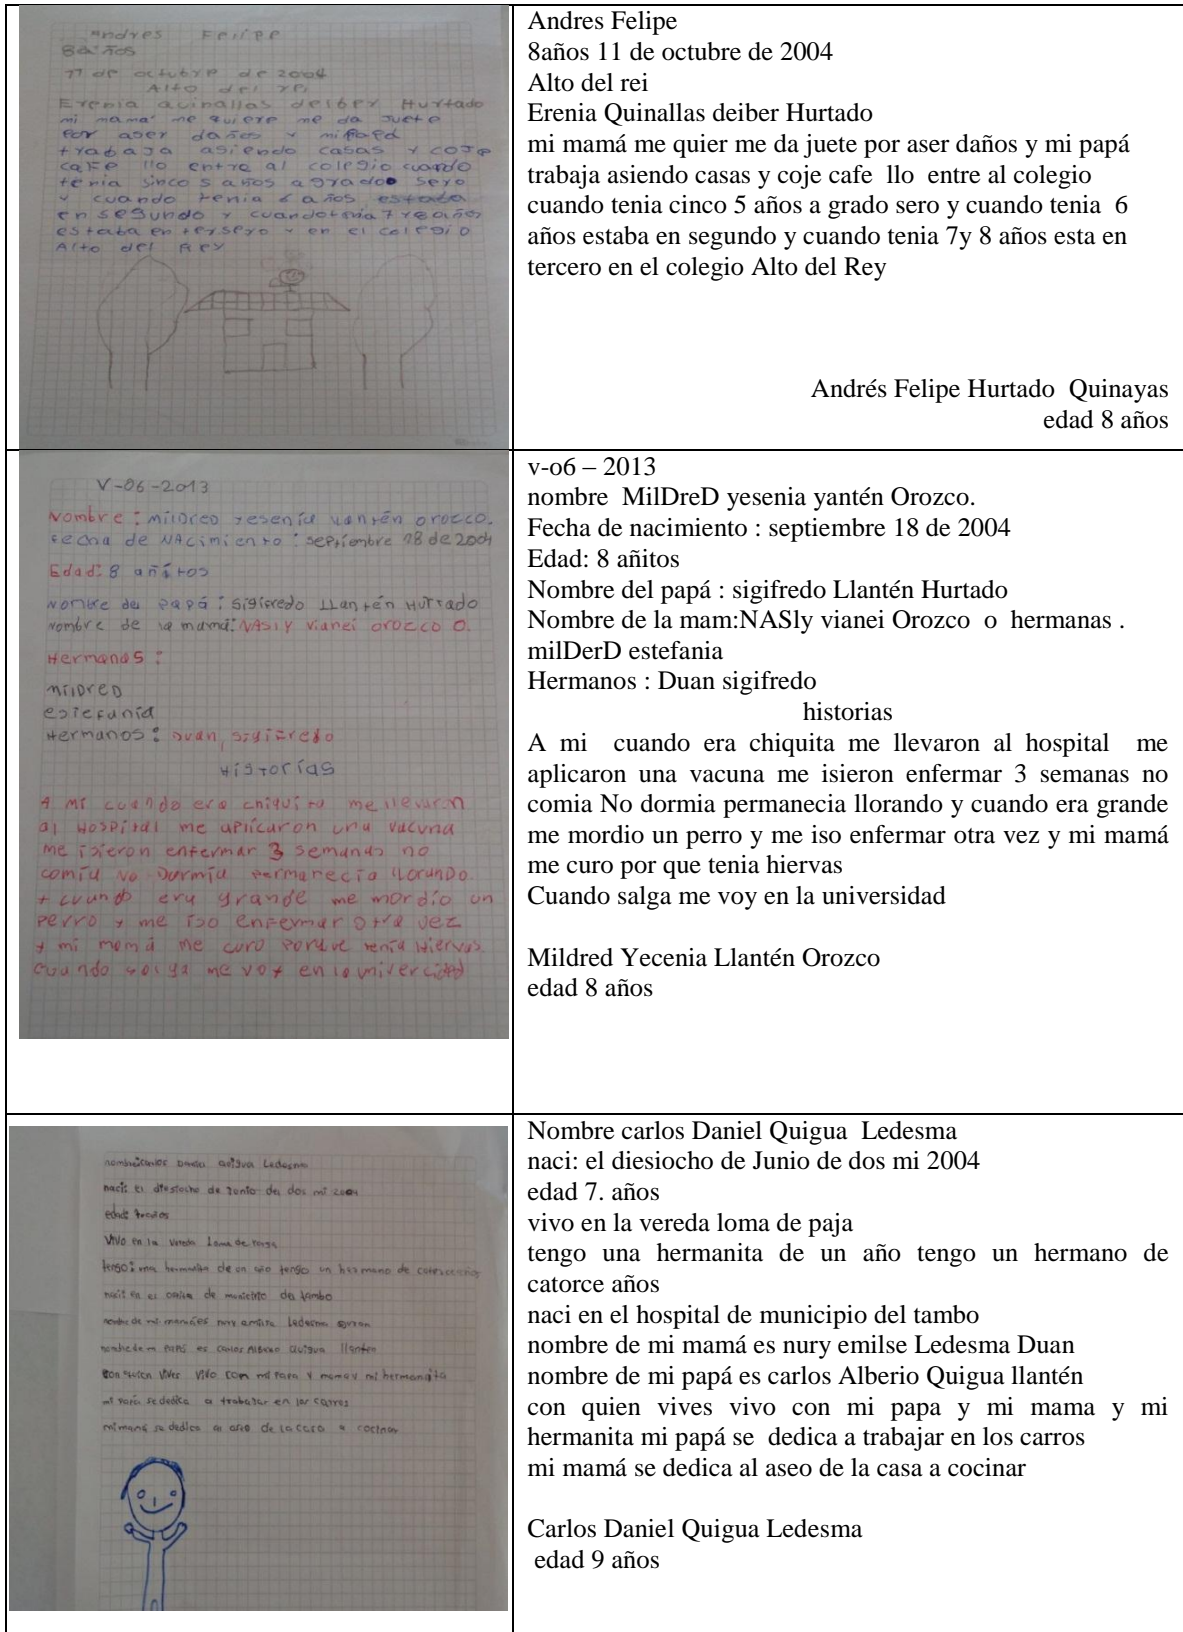 Andres Felipe
8 años
11 de octubre de 2004
Alto del rei
Erenia quinallas deiber Hurtado
mi mama me quiere me da juete
por aser daños y mi papá
trabaja asiendo casas y coje
cafe llo entre al colegio cuando
tenia sinco 5 años a grado sero
y cuando tenia 6 años estaba
en segundo y cuando tenia 7 y 8 años
estaba en tersero y en el colegio
Alto del Rey
Andres Felipe
8años 11 de octubre de 2004
Alto del rei
Erenia Quinallas deiber Hurtado
mi mamá me quier me da juete por aser daños y mi papá
trabaja asiendo casas y coje cafe llo entre al colegio
cuando tenia cinco 5 años a grado sero y cuando tenia 6
años estaba en segundo y cuando tenia 7y 8 años esta en
tercero en el colegio Alto del Rey
Andrés Felipe Hurtado Quinayas
edad 8 años
V-06-2013
Nombre: milDreD yesenia yantén orozco.
fecha de NAcimiento: septiembre 18 de 2004
Edad: 8 añitos
Nombre del papá: sigifredo LLantén Hurtado
Nombre de la mamá: NASlY vianei orozco O.
Hermanas:
milDreD
estefania
Hermanos: Duan, sigifredo
Historias
A mi cuando era chiquita me llevaron
al Hospital me aplicaron una vacuna
me isieron enfermar 3 semanas no
comía No Dormía permanecia llorando.
y cuando era grande me mordío un
perro y me iso enfermar otra vez
y mi mamá me curo porque tenía Hiervas.
cuando salga me voy en la univercidad
v-o6 – 2013
nombre MilDreD yesenia yantén Orozco.
Fecha de nacimiento : septiembre 18 de 2004
Edad: 8 añitos
Nombre del papá : sigifredo Llantén Hurtado
Nombre de la mam:NASly vianei Orozco o hermanas .
milDerD estefania
Hermanos : Duan sigifredo
historias
A mi cuando era chiquita me llevaron al hospital me
aplicaron una vacuna me isieron enfermar 3 semanas no
comia No dormia permanecia llorando y cuando era grande
me mordio un perro y me iso enfermar otra vez y mi mamá
me curo por que tenia hiervas
Cuando salga me voy en la universidad
Mildred Yecenia Llantén Orozco
edad 8 años
nombre: carlos Daniel Quigua Ledesma
naci: el diesiocho de Junio del dos mi 2004
edad: años
Vivo en la vereda Loma de Paja
tengo: una hermanita de un año tengo un hermano de
naci en el de municipio del tambo
nombre de mi mamá es nury Ledesma
nombre de mi PAPÁ es carlos Quigua llantén
con quien vives vivo con mi Papa y mama y mi hermanita
mi Papá se dedica a trabajar en los carros
mi mamá se dedica al de la casa a cocinar
Nombre carlos Daniel Quigua Ledesma
naci: el diesiocho de Junio de dos mi 2004
edad 7. años
vivo en la vereda loma de paja
tengo una hermanita de un año tengo un hermano de
catorce años
naci en el hospital de municipio del tambo
nombre de mi mamá es nury emilse Ledesma Duan
nombre de mi papá es carlos Alberio Quigua llantén
con quien vives vivo con mi papa y mi mama y mi
hermanita mi papá se dedica a trabajar en los carros
mi mamá se dedica al aseo de la casa a cocinar
Carlos Daniel Quigua Ledesma
edad 9 años